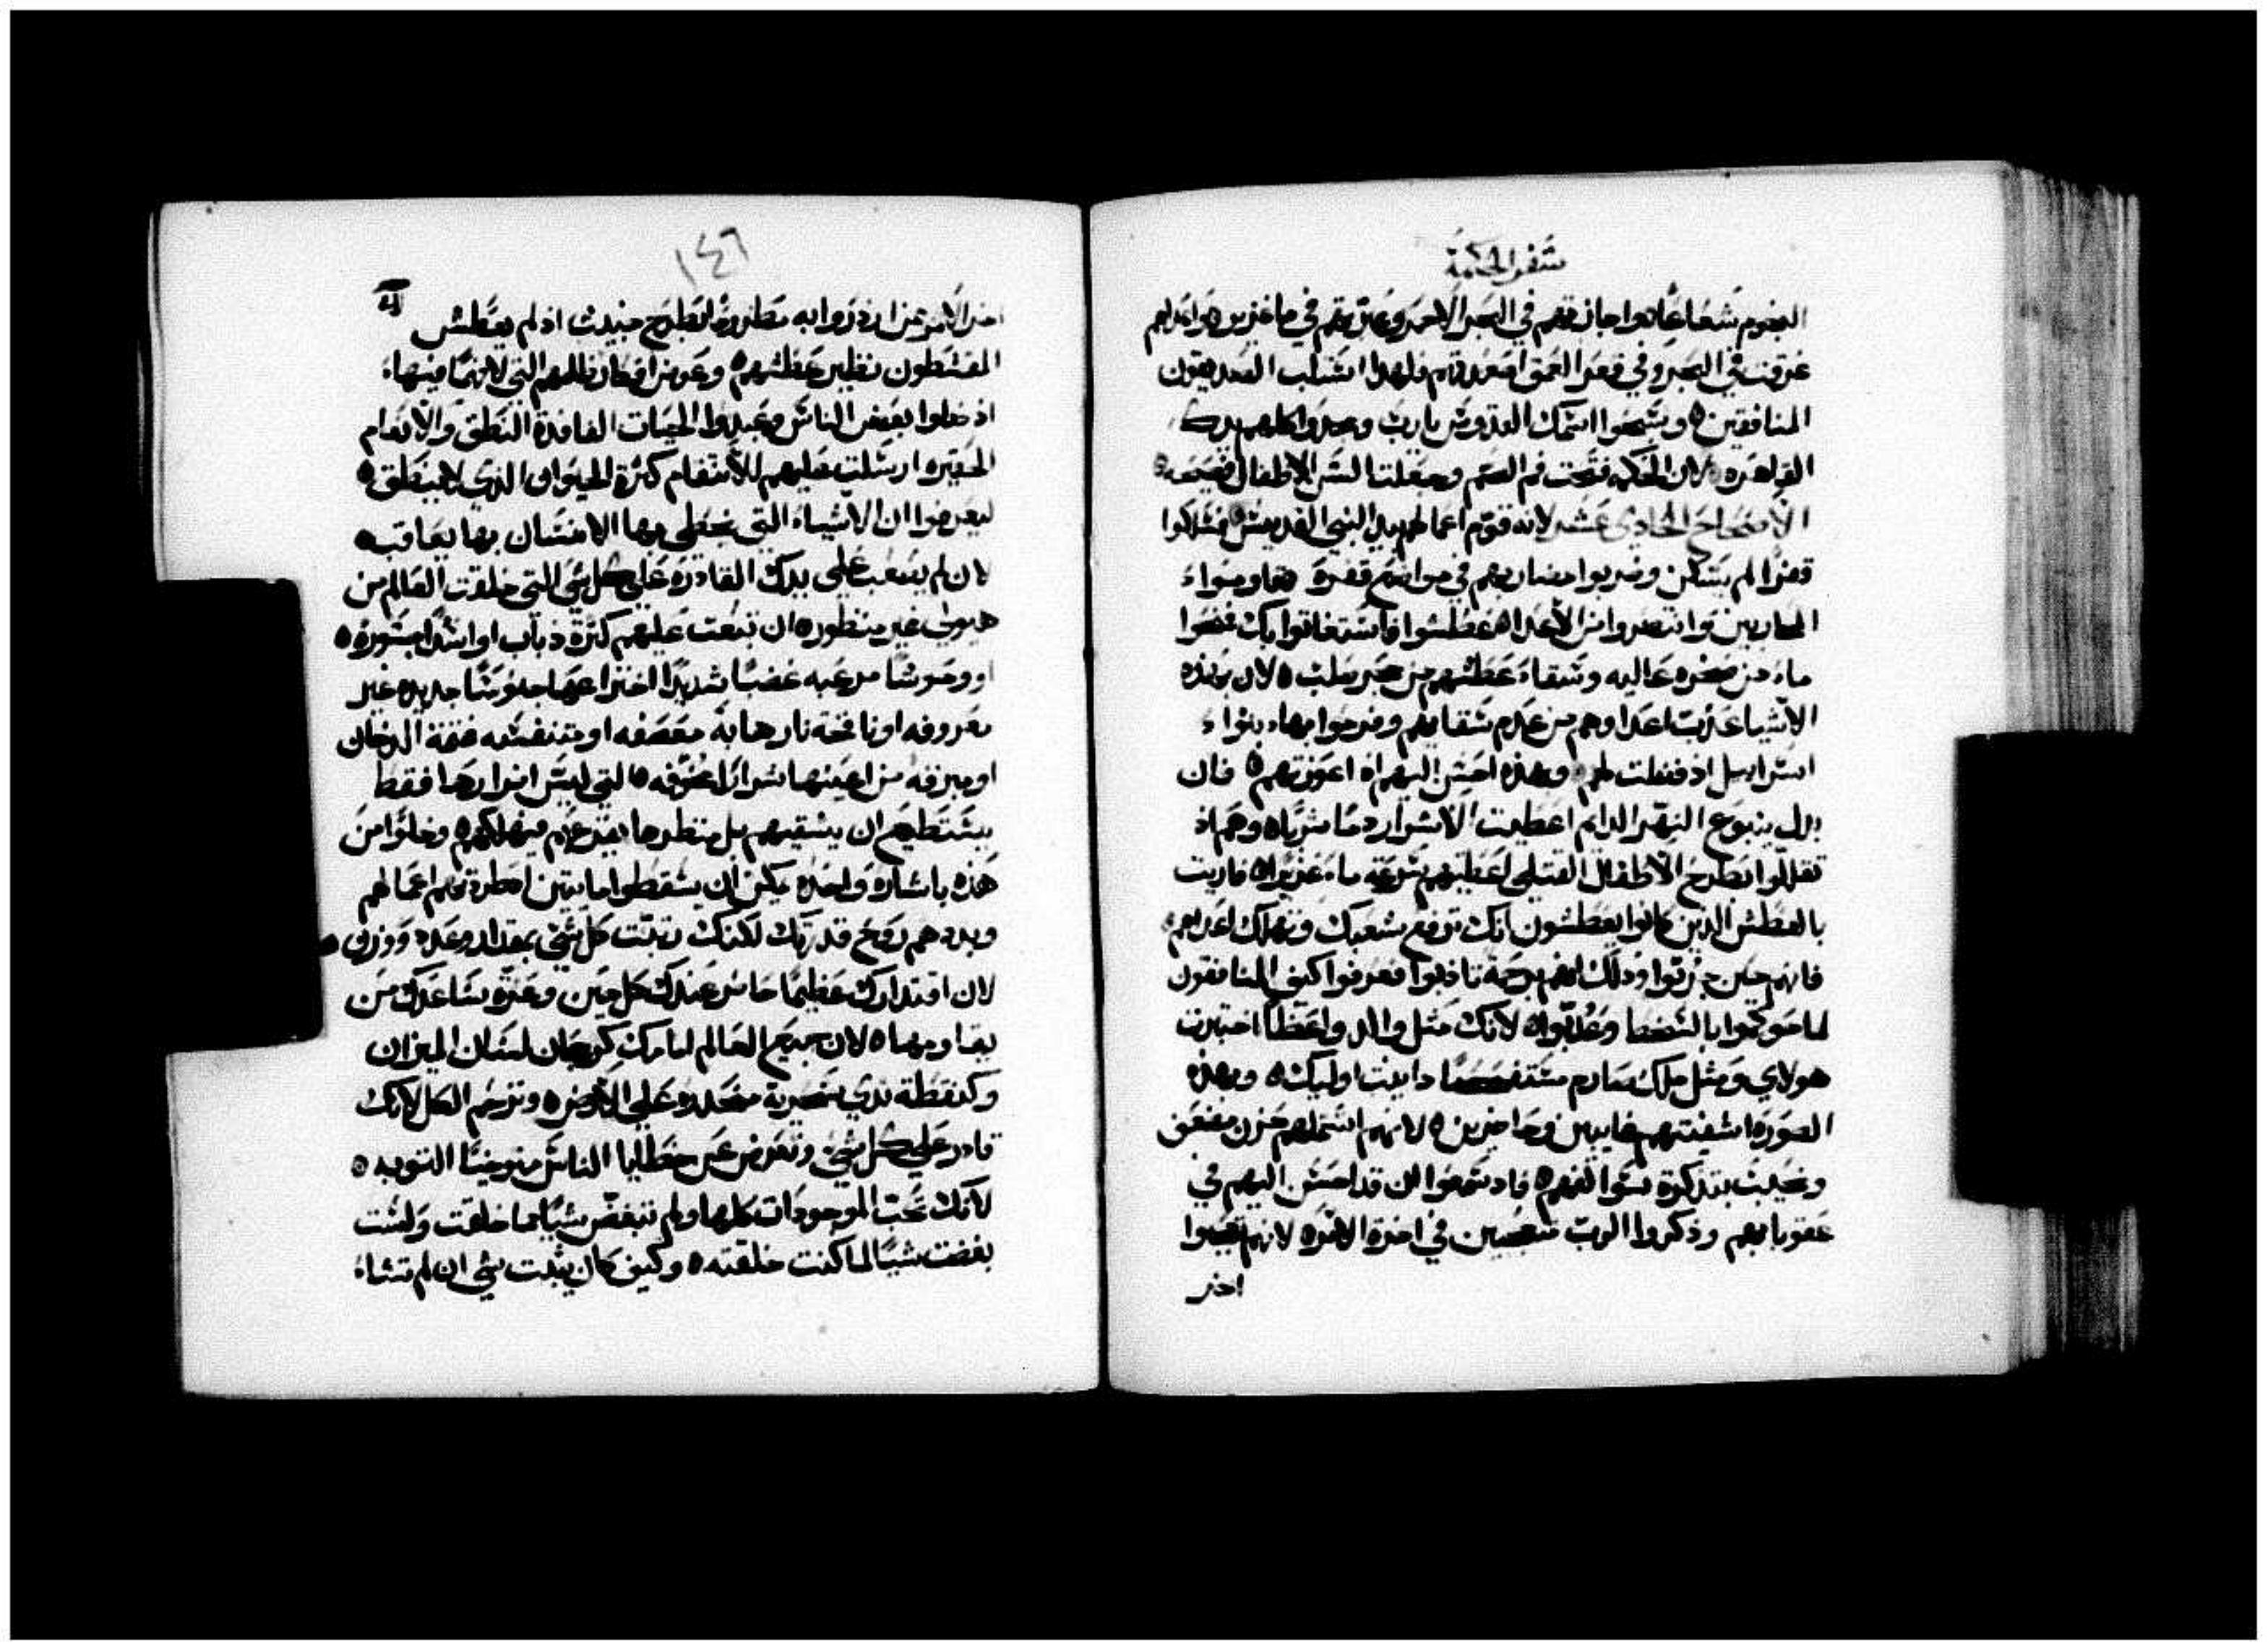 سفر الحكمة
النجوم شعاعًا هواجازتهم في البحر الاحمر وعبرتهم في ما غزير واعداهم
غرقت في البحر وفي قعر العمق اصعدتهم فلهذا استلب الصديقون
المنافقين ه وسبحوا اسمك القدوس يارب وحمدوا كلهم يدك
القاهره لان الحكمه فتحت فم الصم وجعلت السن الاطفال فصيحه
الاصحاح الحادي عشر لانه قوم اعمالهم بيد النبي القديس ه فسلكوا
قفرًا لم يسكن وضربوا مضاربهم في مواضع قفرة قاوموا
المحاربين وانتصروا من الاعدا ه عطشوا فاستغاثوا بك فمنحوا
ماء من صخره عاليه وشفاء عطشهم من حجر صلب ه لان بهذه
الاشيا عذبت اعداوهم من عدم سقايتهم وفرحوا بها بنواء
اسراييل اذ فضلت لهم وبهذه احسن اليهم اذ اعوزتهم ه فان
بدل ينبوع النهر الدايم اعطيت الاشرار دمًا بشريًا ه وهم اذ
تقللوا بطرح الاطفال القتلى اعطيتهم بسرعة ماء غزيرًا ه فاريت
بالعطش الذين كانوا يعطشون انك ترفع شعبك وتهلك اعداهم
فانهم حين جربوا وذلك انهم برحمة تادبوا فعرفوا كيف المنافقون
لما حوكموا بالسخط وعذبوا ه لانك مثل والد واعظًا اختبرت
هولاي ومثل ملك صارم مستفحصًا داينت اوليك ه وبهذه
الصوره اشقيتهم غايبين وحاضرين ه لانهم اشملهم حزن مضعف
ونحيب بتذكرة سوالفهم ه فاذ سمعوا ان قد احسن اليهم في
عقوباتهم وذكروا الرب متعجبين في اخرة الامره لانهم تعجبوا
اخر
١٤٦
اخر الامر من ازدروا به مطروحًا بطرح خبيث اذ لم يعطش
المقسطون نظير عطشهم ه وعوض افكار ظلمهم التي لافهمًا فيها ه
اذ ضلوا بعض الناس وعبدوا الحيات الفاقدة النطق والانعام
الحقيره ارسلت عليهم للانتقام كثرة الحيوان الذي لا ينطق ه
ليعرفوا ان الاشياء التي يخطي بها الانسان بها يعاقب ه
لان لم يصعب على يدك القادره على كل شي التي خلقت العالم من
هيولي غير منظوره ان تبعث عليهم كثرة ذباب او اسدًا جسورة ه
او وحوشًا مرعبه غضبًا شديدًا اختراعها جلوسًا جديده غير
معروفه او نافخة نار هابة معصفه او متنفسه فتنة الدخان
او مبرقه من اعينها شرارًا مخوفه ه التي ليس اضرارها فقط
يستطيع ان يسقيهم بل منظرها يفزعهم فيهلكهم ه وخلوًا من
هذه باشاره واحده يمكن ان يسقطوا مايتين لطردتهم اعمالهم
وبددهم روح قدرتك لكنك رتبت كل شي بمقدار وعدد ووزن ه
لان اقتدارك عظيمًا حاضر عندك كل حين وعزة ساعدك من
يقاومها ه لان جميع العالم امامك كرجحان لسان الميزان
وكنقطة ندي سحرية منحدره على الارض ه وترحم الكل لانك
قادر على كل شي وتعرض عن خطايا الناس متوخيًا التوبه ه
لانك تحب الموجودات كلها ولم تبغض شيًا مما خلقت ولست
بغضت شيًا لما كنت خلقته ه وكيف كان يثبت شي ان لم تشاء